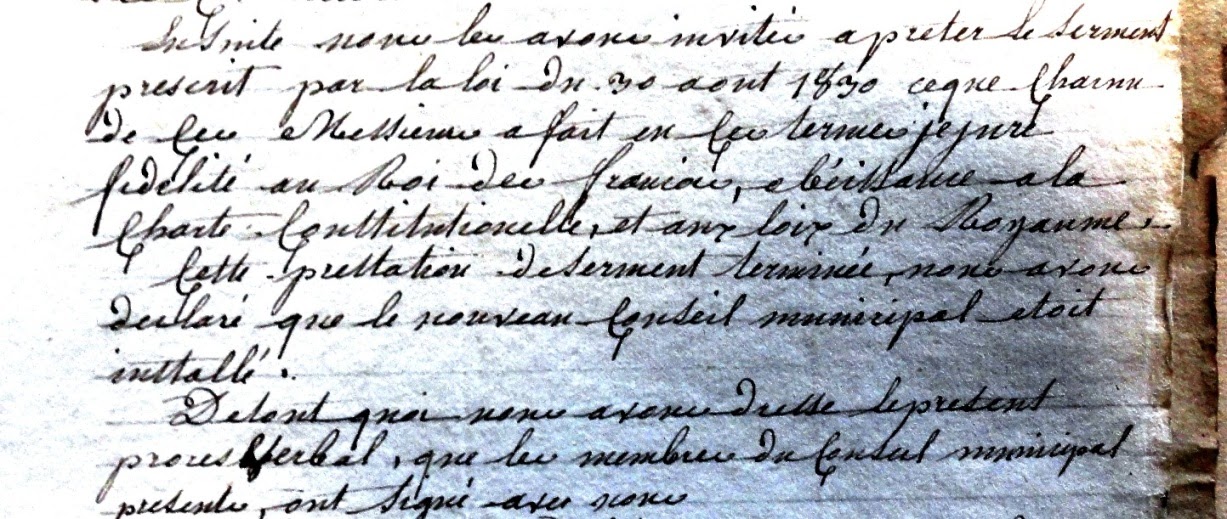 Ensuite nous les avons invités a prêter le serment
prescrit par la loi du 30 aout 1830 ceque Chacun
de Ces Messieurs a fait en Ces termes, je jure
fidélité au Roi des français, obéissance a la
Charte Constitutionelle, et aux loix du Royaume.
Cette prestation de serment terminée, nous avons
declaré que le nouveau Conseil municipal etoit
installé.
De tout quoi nous avons dressé le present
proces Verbal, que les membres du Conseil municipal
presents, ont signé avec nous